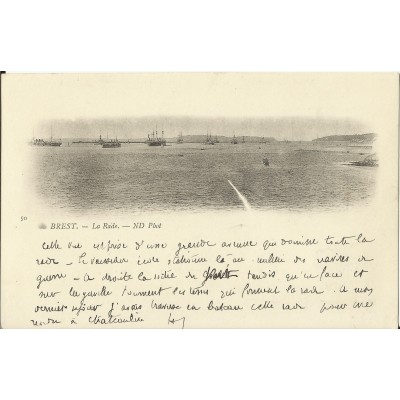 50
BREST. — La Rade. — ND Phot
Cette vue est prise d'une grande avenue qui domine toute la
rade — Le vaisseau école stationne là au milieu des navires de
guerre — A droite la sortie du tandis qu'en face et
sur la gauche tournent les terres qui forment la rade. A mon
dernier séjour j'avais traversé en bateau cette rade pour me
rendre à Chateaulin